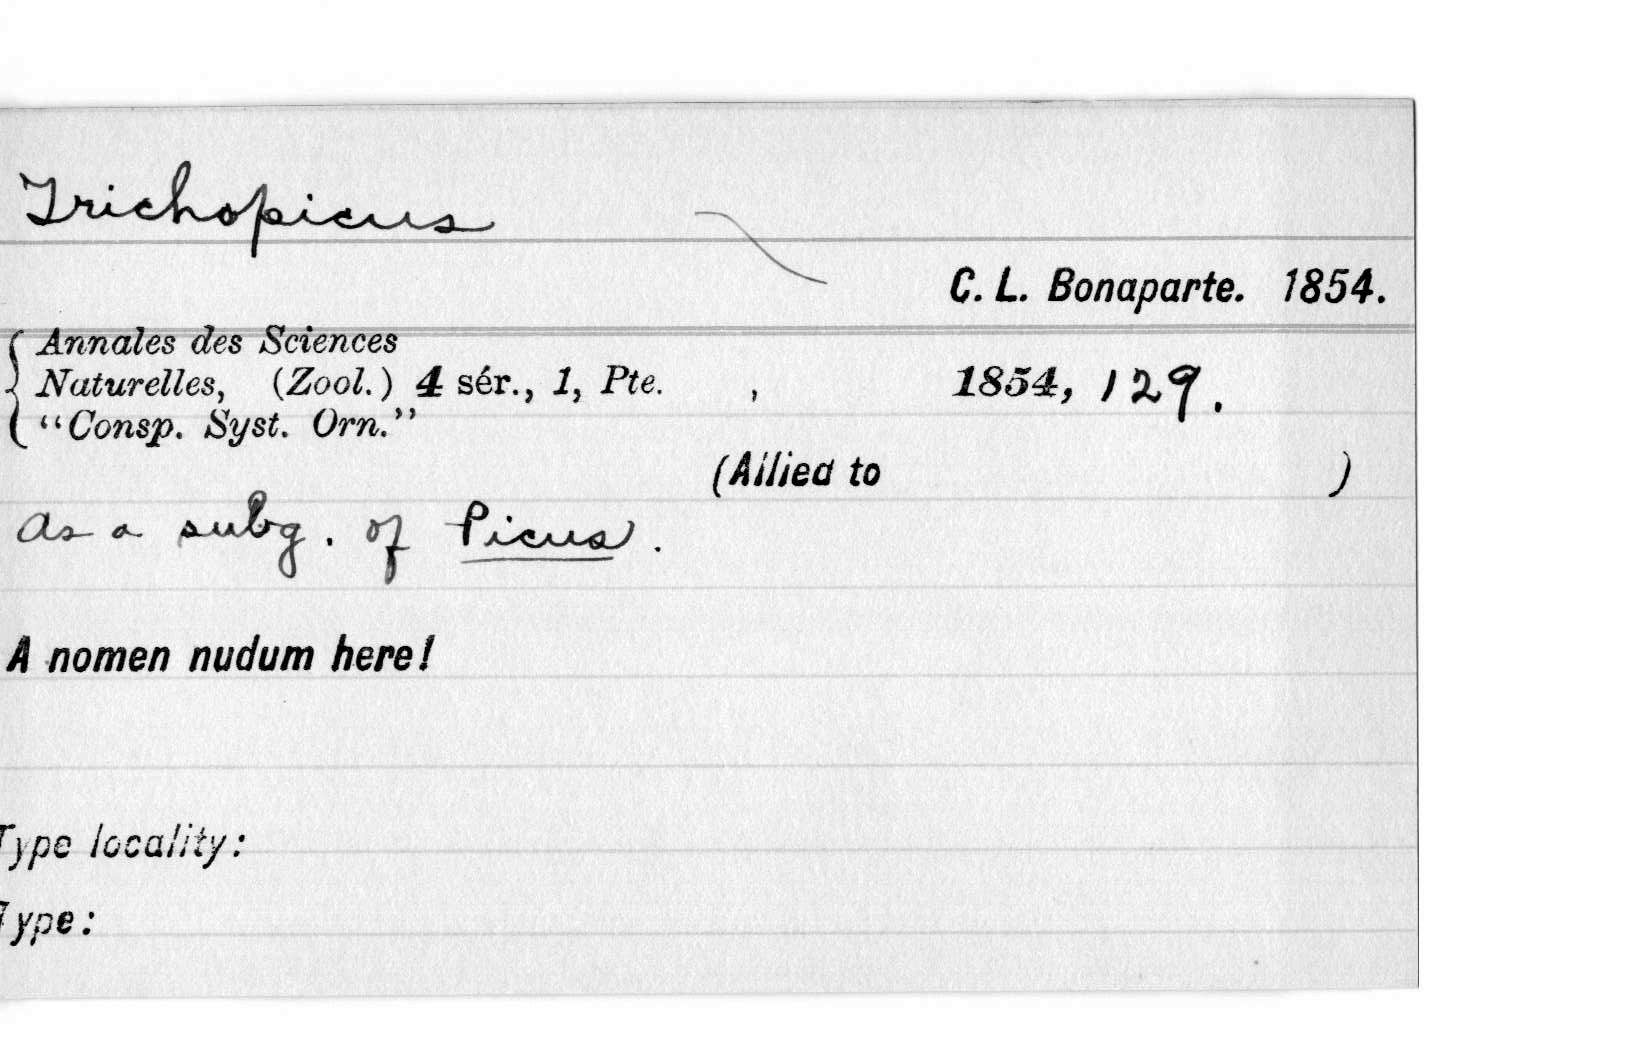 Trichopicus
C. L. Bonaparte. 1854.
Annales des Sciences
Naturelles, (Zool.) 4 sér., 1, Pte. , 1854, 129.
"Consp. Syst. Orn."
(Allied to )
as a subg. of Picus.
A nomen nudum here!
Type locality:
Type: